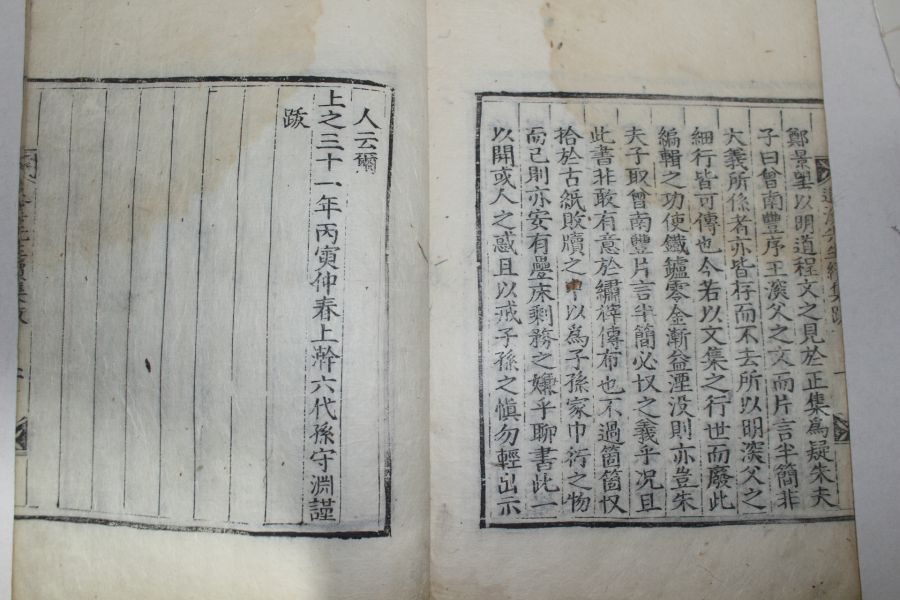 鄭景望以明道程文之見於正集爲疑朱夫
子曰曾南豐序王深父之文而片言半簡非
大義所係者亦皆存而不去所以明深父之
細行皆可傳也今若以文集之行世而廢此
編輯之功使鐵鑪零金漸益湮没則亦豈朱
夫子取曾南豐片言半簡必収之義乎况且
此書非敢有意於繡梓傳布也不過箇箇収
拾於古紙敗牘之中以爲子孫家巾衍之物
而已則亦安有疊床剩務之嫌乎聊書此一
以開或人之惑且以戒子孫之愼勿輕出示
人云爾
上之三十一年丙寅仲春上澣六代孫守淵謹
跋